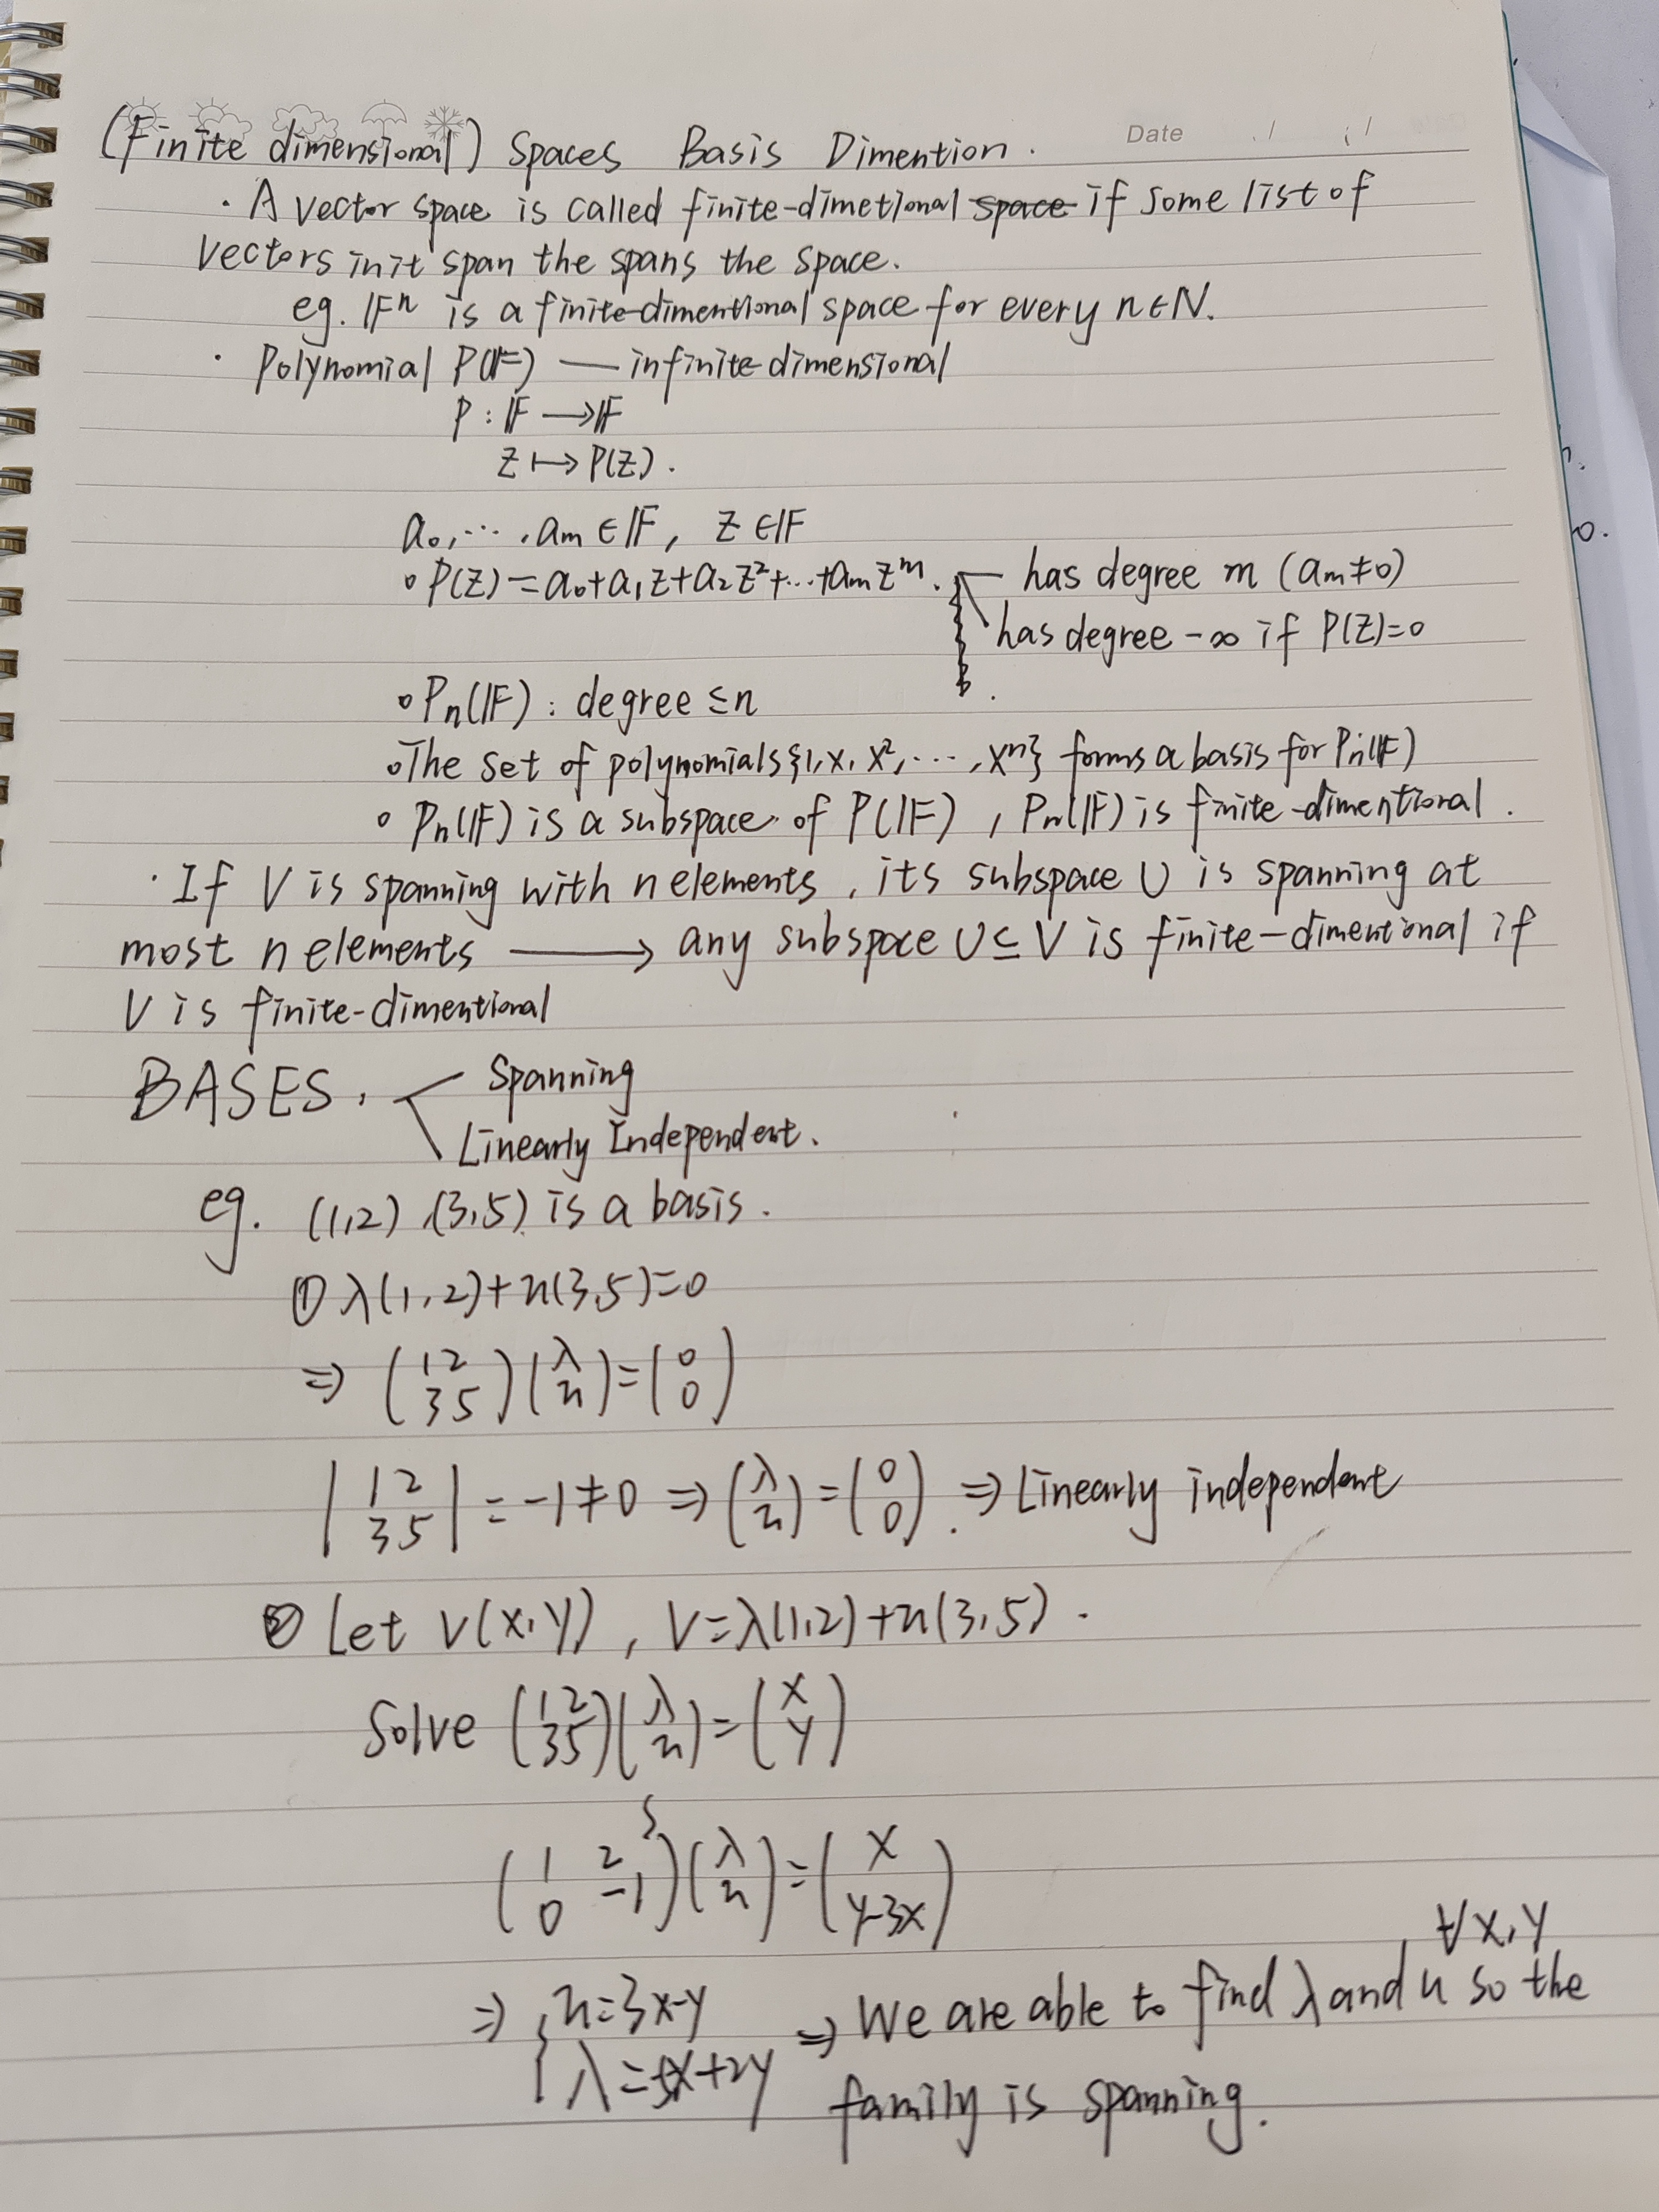 (Finite dimensional) Spaces Basis Dimention.
Date / /
· A vector space is called finite-dimetional space if some list of
vectors in it span the spans the space.
eg. 𝔽ⁿ is a finite-dimentional space for every n∈N.
· Polynomial P(𝔽) — infinite dimensional
P : 𝔽 ⟶ 𝔽
z ⟼ P(z).
a₀, ··· , aₘ ∈ 𝔽, z ∈ 𝔽
∘ P(z) = a₀+a₁z+a₂z²+···+aₘzᵐ. — has degree m (aₘ≠0)
has degree -∞ if P(z)=0
∘ Pₙ(𝔽) : degree ≤n
∘ The set of polynomials {1, x, x², ··· , xⁿ} forms a basis for Pₙ(𝔽)
∘ Pₙ(𝔽) is a subspace of P(𝔽) , Pₙ(𝔽) is finite-dimentional.
· If V is spanning with n elements, its subspace U is spanning at
most n elements ⟶ any subspace U⊆V is finite-dimentional if
V is finite-dimentional
BASES. Spanning
Linearly Independent.
eg. (1,2) (3,5) is a basis.
① λ(1,2)+u(3,5)=0
⇒ (1 2 / 3 5)(λ / u)=(0 / 0)
|1 2 / 3 5| = -1≠0 ⇒ (λ / u)=(0 / 0). ⇒ Linearly independent
② Let v(x,y), V=λ(1,2)+u(3,5).
Solve (1 2 / 3 5)(λ / u)=(x / y)
(1 2 / 0 -1)(λ / u)=(x / y-3x)
∀x,y
⇒ { u=3x-y ⇒ We are able to find λ and u so the
λ=-5x+2y family is spanning.